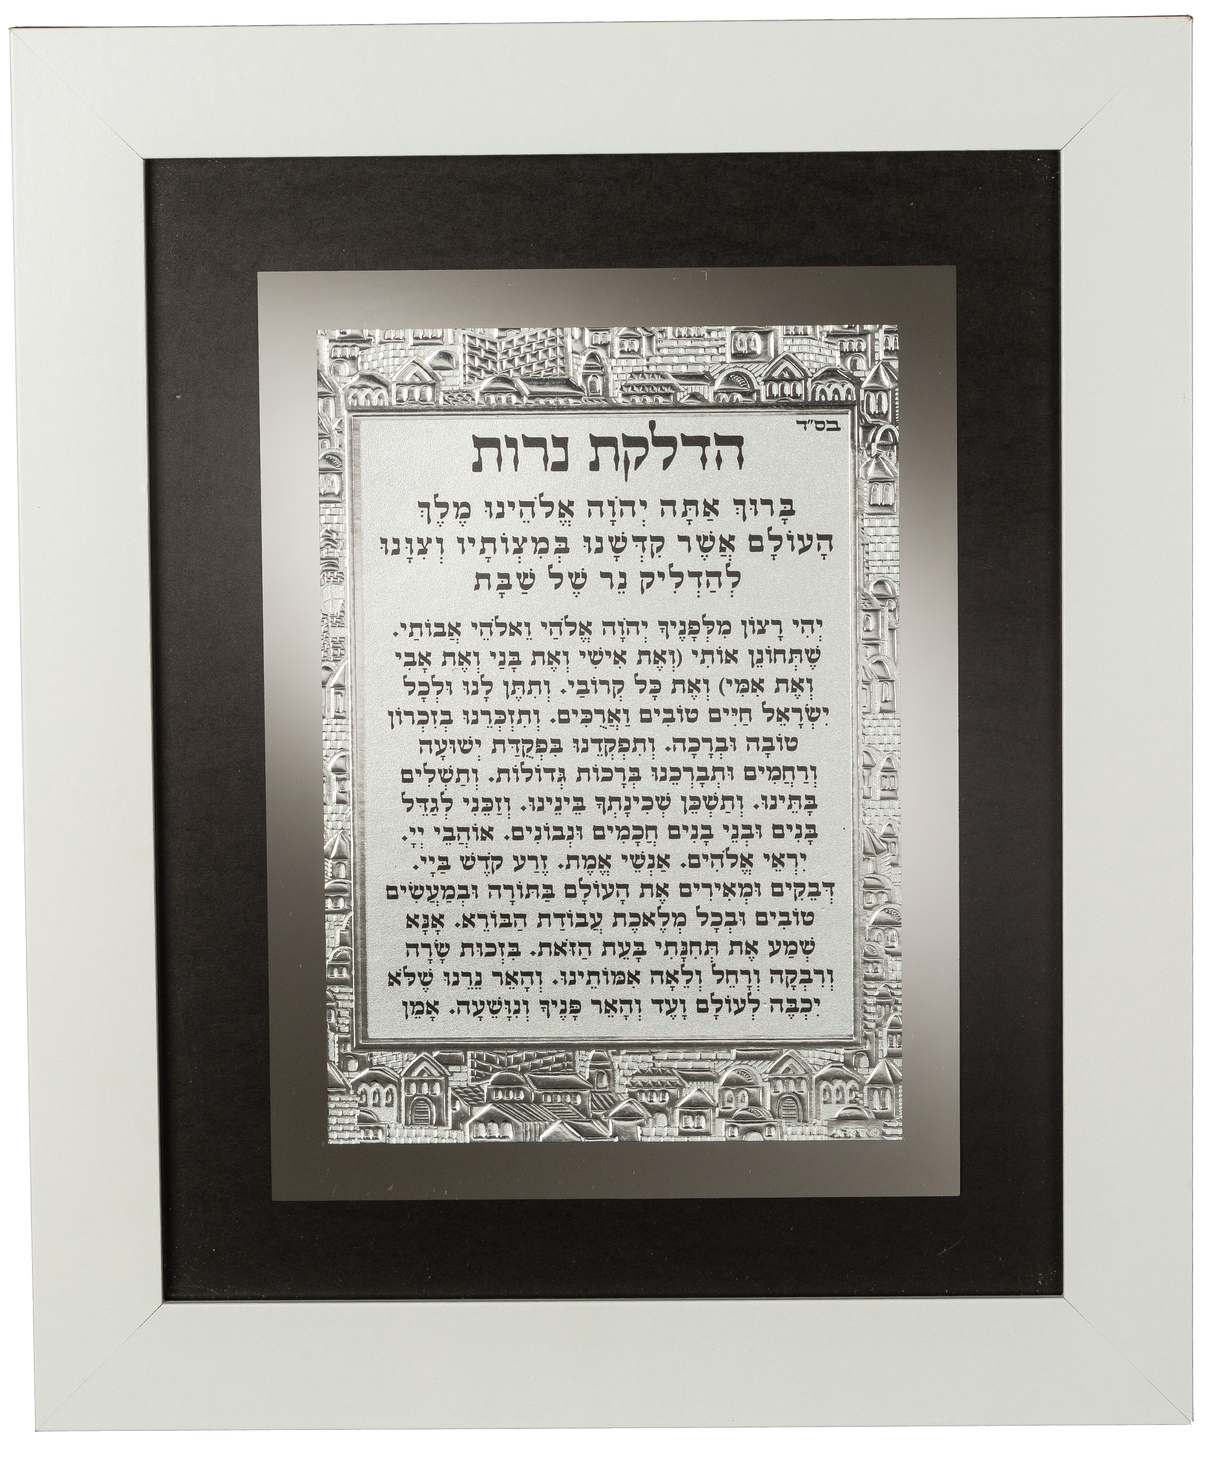 בס"ד
הדלקת נרות
בָּרוּךְ אַתָּה יְהֹוָה אֱלֹהֵינוּ מֶלֶךְ
הָעוֹלָם אֲשֶׁר קִדְּשָׁנוּ בְּמִצְוֹתָיו וְצִוָּנוּ
לְהַדְלִיק נֵר שֶׁל שַׁבָּת
יְהִי רָצוֹן מִלְּפָנֶיךָ יְהֹוָה אֱלֹהַי וֵאלֹהֵי אֲבוֹתַי.
שֶׁתְּחוֹנֵן אוֹתִי (וְאֶת אִישִׁי וְאֶת בָּנַי וְאֶת אָבִי
וְאֶת אִמִּי) וְאֶת כָּל קְרוֹבַי. וְתִתֶּן לָנוּ וּלְכָל
יִשְׂרָאֵל חַיִּים טוֹבִים וַאֲרֻכִּים. וְתִזְכְּרֵנוּ בְּזִכְרוֹן
טוֹבָה וּבְרָכָה. וְתִפְקְדֵנוּ בִּפְקֻדַּת יְשׁוּעָה
וְרַחֲמִים וּתְבָרְכֵנוּ בְּרָכוֹת גְּדוֹלוֹת. וְתַשְׁלִים
בָּתֵּינוּ. וְתַשְׁכֵּן שְׁכִינָתְךָ בֵּינֵינוּ. וְזַכֵּנִי לְגַדֵּל
בָּנִים וּבְנֵי בָנִים חֲכָמִים וּנְבוֹנִים. אוֹהֲבֵי יְיָ.
יִרְאֵי אֱלֹהִים. אַנְשֵׁי אֱמֶת. זֶרַע קֹדֶשׁ בַּיְיָ.
דְּבֵקִים וּמְאִירִים אֶת הָעוֹלָם בַּתּוֹרָה וּבְמַעֲשִׂים
טוֹבִים וּבְכָל מְלֶאכֶת עֲבוֹדַת הַבּוֹרֵא. אָנָּא
שְׁמַע אֶת תְּחִנָּתִי בָּעֵת הַזֹּאת. בִּזְכוּת שָׂרָה
וְרִבְקָה וְרָחֵל וְלֵאָה אִמּוֹתֵינוּ. וְהָאֵר נֵרֵנוּ שֶׁלֹּא
יִכְבֶּה לְעוֹלָם וָעֶד וְהָאֵר פָּנֶיךָ וְנִוָּשֵׁעָה. אָמֵן